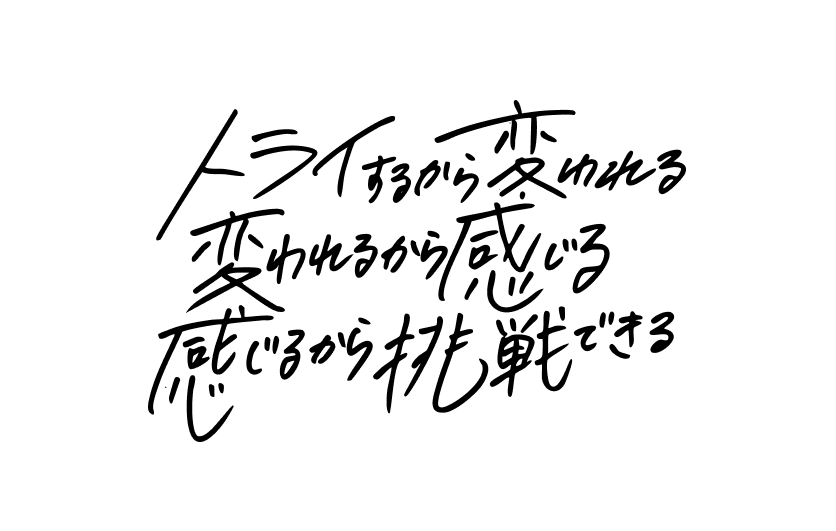 トライするから変われる
変われるから感じる
感じるから挑戦できる